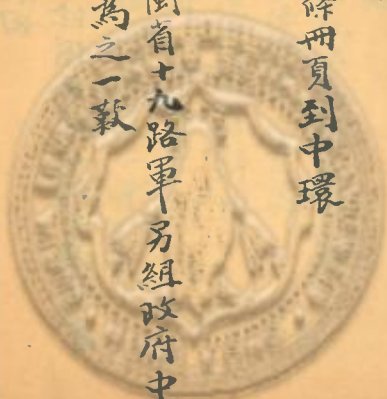 條冊頁到中環
閩省十九路軍另組政府中
為之一歎